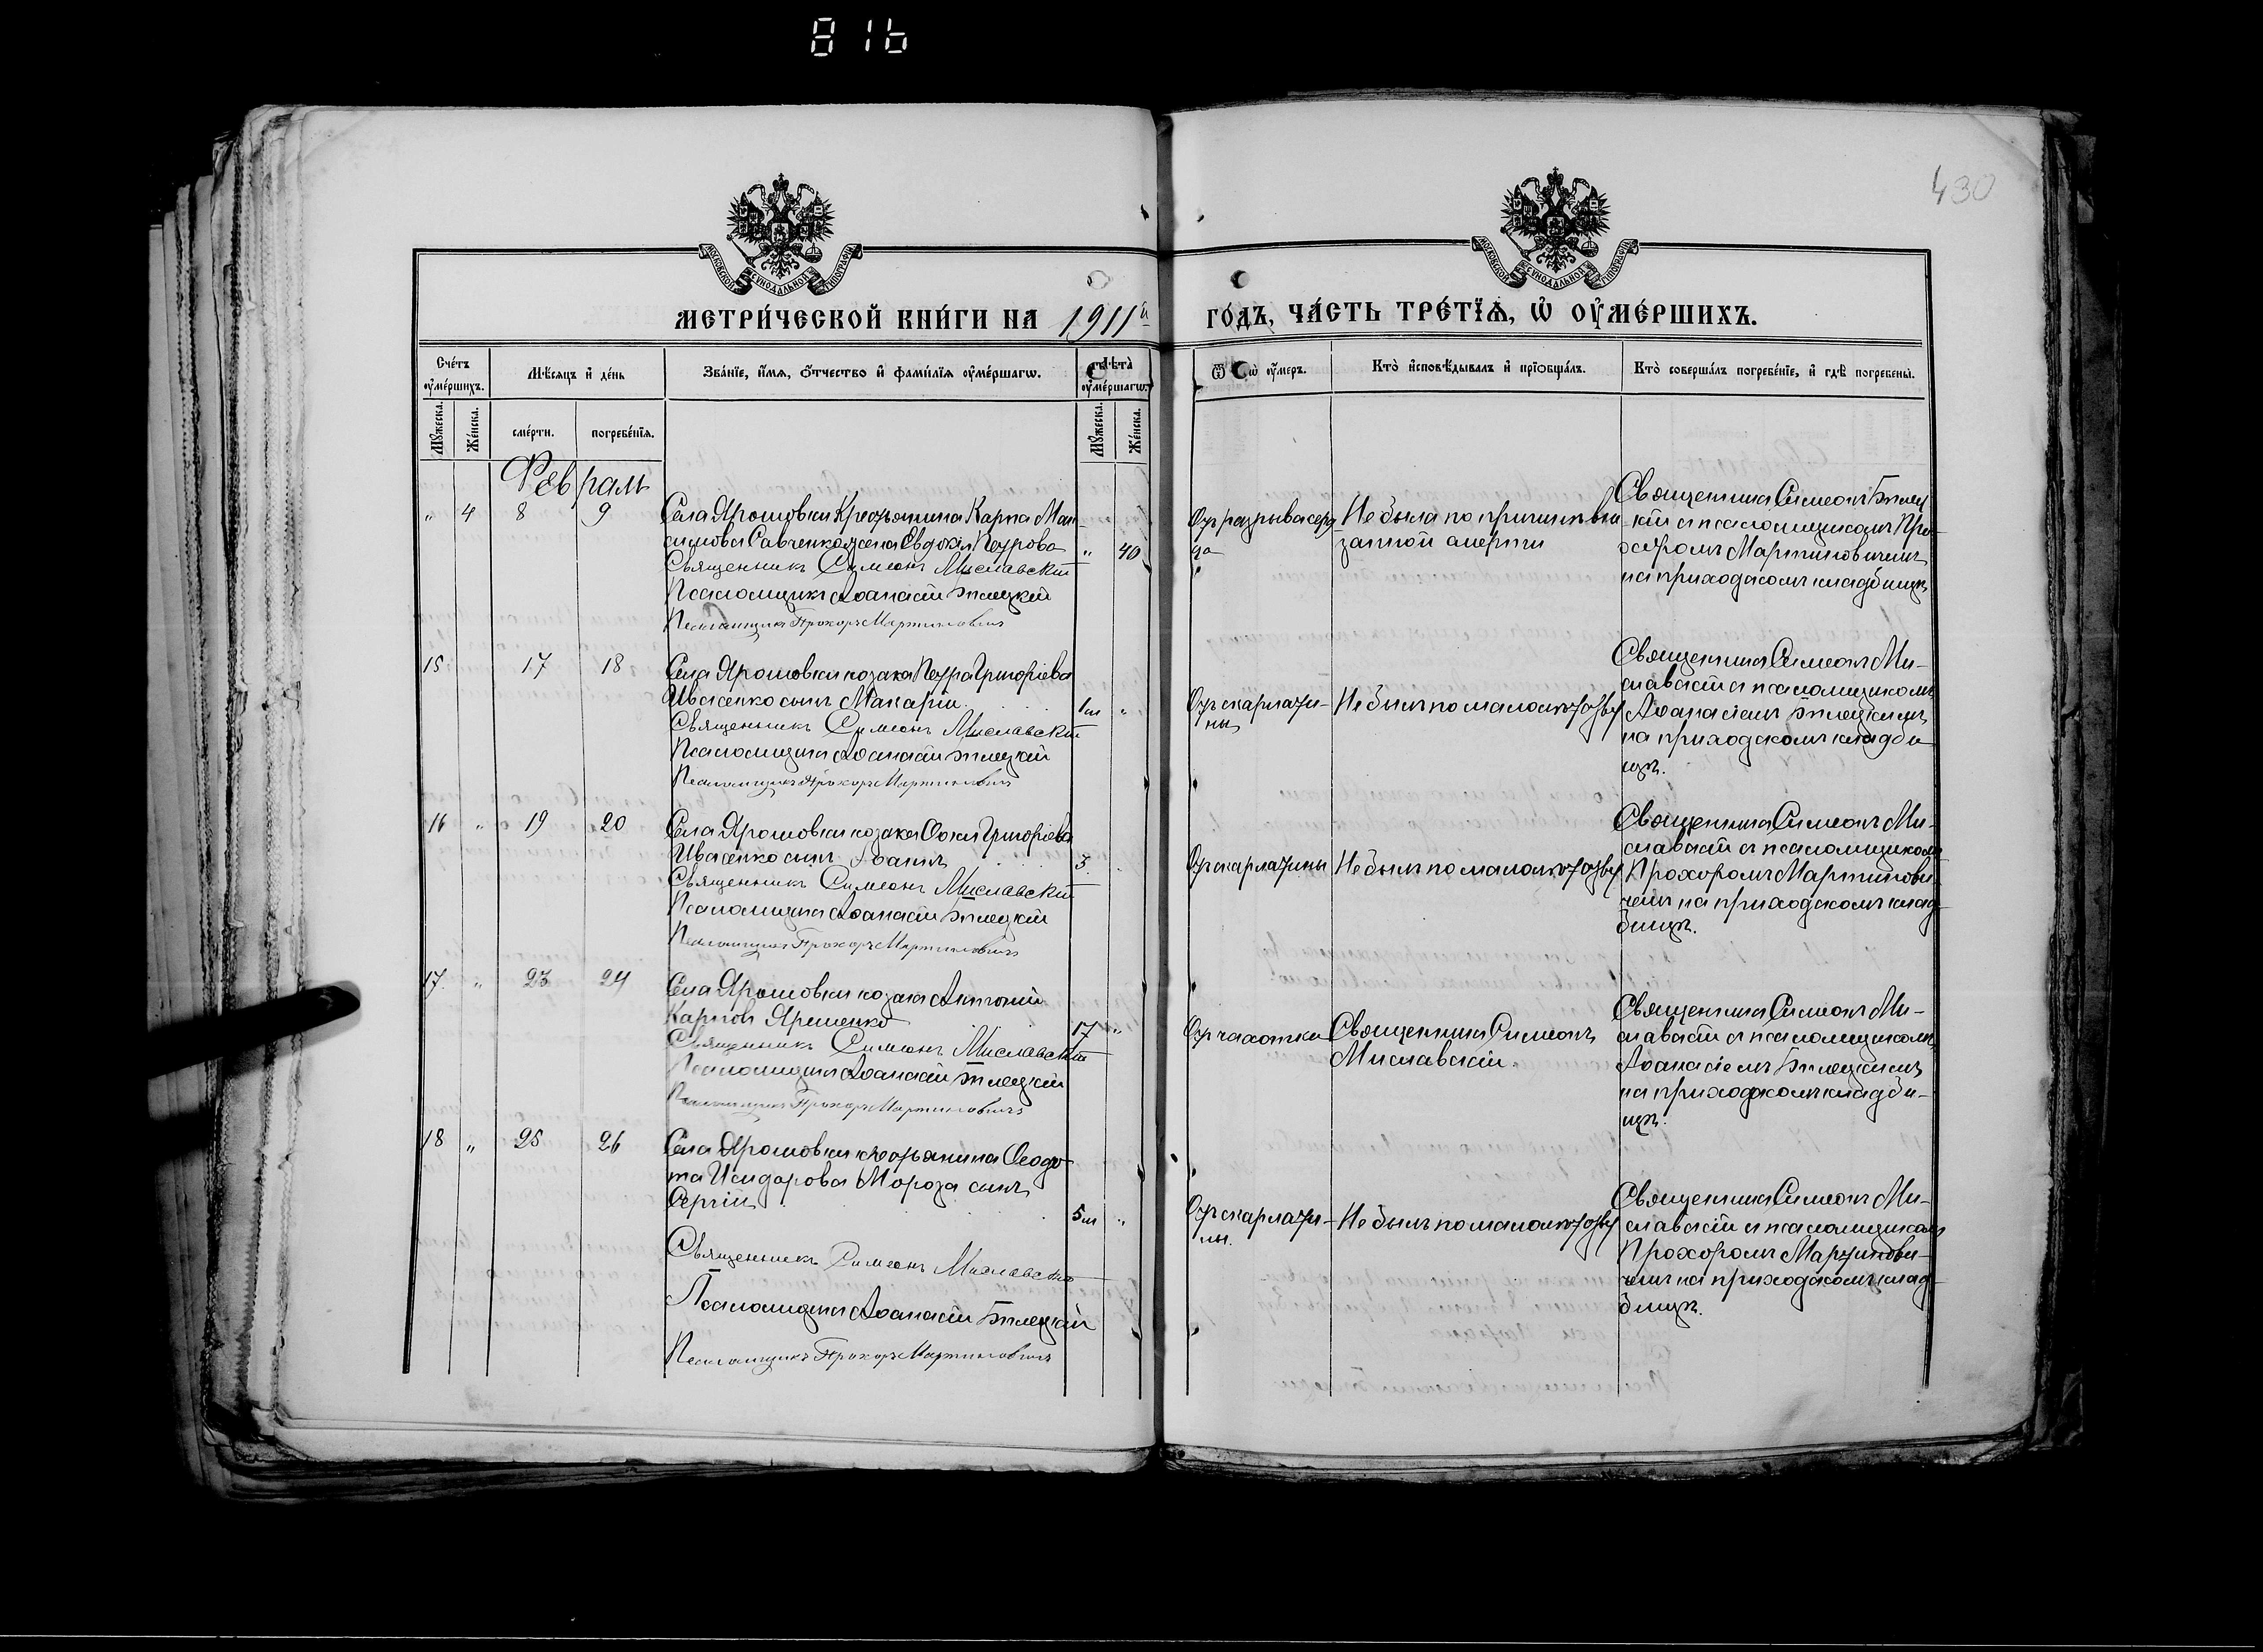 816
430
МОСКОВСКОЙ СѴНОДАЛЬНОЙ ТИПОГРАФІИ
МОСКОВСКОЙ СѴНОДАЛЬНОЙ ТИПОГРАФІИ
МЕТРИ́ЧЕСКОЙ КНИ́ГИ НА 1911й ГО́ДЪ, ЧА́СТЬ ТРЕ́ТЇѦ, Ѡ҆ ОУ҆МЕ́РШИХЪ.
Сче́тъ оу҆ме́ршихъ.
Мѣ́сяцъ и҆ де́нь
Зва́нїе, и҆́мя, ѻ҆́тчество и҆ фами́лїя оу҆ме́ршагѡ.
Лѣ̑та оу҆ме́ршагѡ.
оу҆́меръ.
Кто̀ и҆сповѣ́дывалъ и҆ прїѡбща́лъ.
Кто̀ соверша́лъ погребе́нїе, и҆ гдѣ̀ погребены̀.
Мꙋ́жеска.
Же́нска.
сме́рти.
погребе́нїя.
Мꙋ́жеска.
Же́нска.
Февраль
" 4 8 9
Села Ярошовки Крестьянина Карпа Мак-
симова Савченко жена Евдокія Петрова " 40
Священникъ Симеонъ Миславскій
Псаломщикъ Аѳанасій Бѣлецкій
Псаломщикъ Прохоръ Мартиновичъ
Отъ разрыва серд
ца
Не была по причинѣ вне
запной смерти
Священникъ Симеонъ
кій съ псаломщикомъ Про-
хоромъ Мартиновичемъ
на приходскомъ кладбищѣ
15 17 18
Села Ярошовки козака Петра Григоріева
Ивасенко сынъ Макарій 1м "
Священникъ Симеонъ Миславскій
Псаломщикъ Аѳанасій Бѣлецкій
Псаломщикъ Прохоръ Мартиновичъ
Отъ скарлати-
ны
Не былъ по малолѣтству
Священникъ Симеонъ Ми-
славскій съ псаломщикомъ
Аѳанасіемъ Бѣлецкимъ
на приходскомъ кладби
щѣ.
16 " 19 20
Села Ярошовки козака Григоріева
Ивасенко сынъ Іоаннъ 3
Священникъ Симеонъ Миславскій
Псаломщикъ Аѳанасій Бѣлецкій
Псаломщикъ Прохоръ Мартиновичъ
Отъ скарлатины
Не былъ по малолѣтству
Священникъ Симеонъ Ми-
славскій съ псаломщикомъ
Прохоромъ Мартинови-
чемъ на приходскомъ клад-
бищѣ.
17 " 23 24
Села Ярошовки козака Антоній
Карповъ Ярешенко 17 "
Священникъ Симеонъ Миславскій
Псаломщикъ Аѳанасій Бѣлецкій
Псаломщикъ Прохоръ Мартиновичъ
Отъ чахотки
Священникъ Симеонъ
Миславскій.
Священникъ Симеонъ Ми-
славскій съ псаломщикомъ
Аѳанасіемъ Бѣлецкимъ
на приходскомъ кладби-
щѣ.
18 " 25 26
Села Ярошовки крестьянина Ѳеодо-
та Исидорова Мороза сынъ
Сергій 5м "
Священникъ Симеонъ Миславскій
Псаломщикъ Аѳанасій Бѣлецкій
Псаломщикъ Прохоръ Мартиновичъ
Отъ скарлати-
ны.
Не былъ по малолѣтству
Священникъ Симеонъ Ми-
славскій съ псаломщикомъ
Прохоромъ Мартинови-
чемъ на приходскомъ клад-
бищѣ.